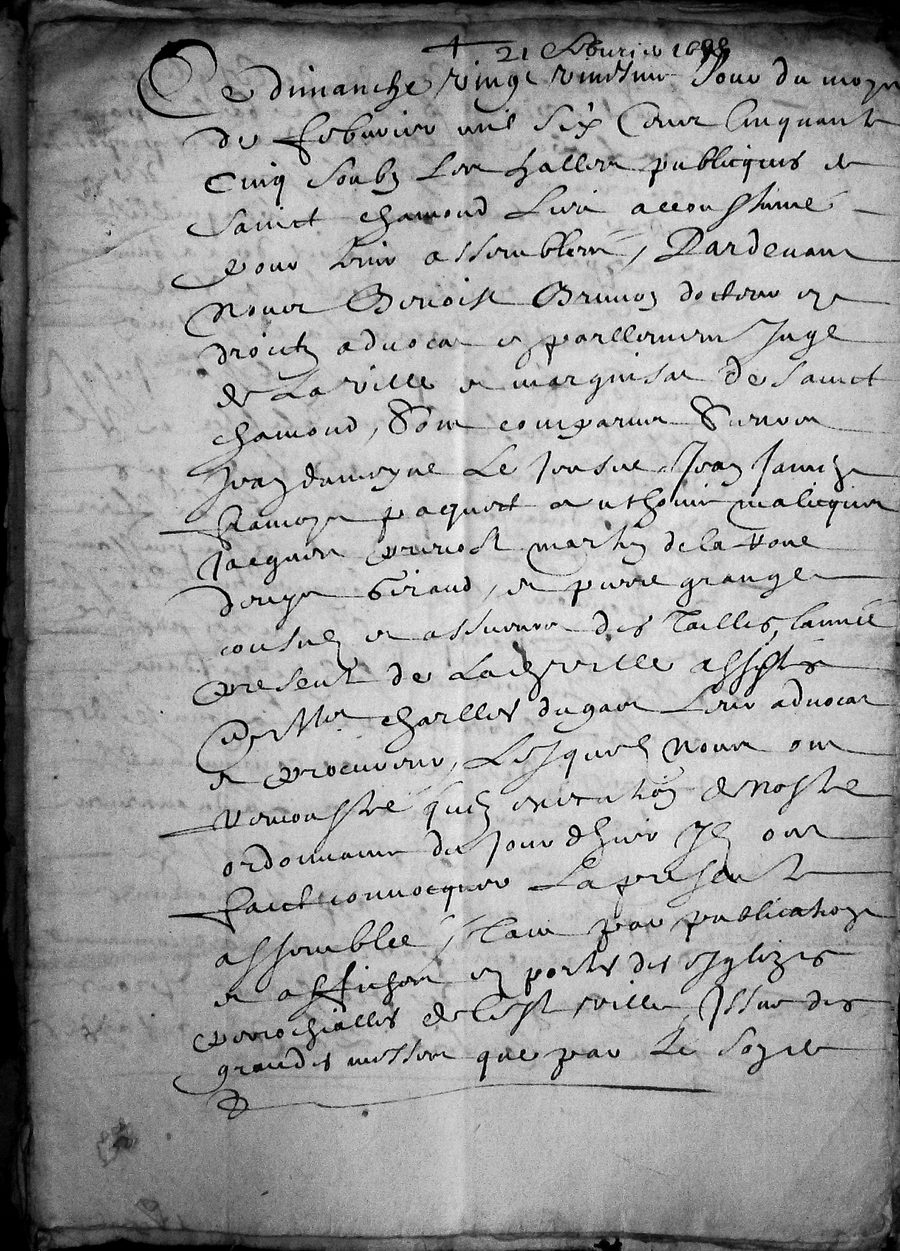 21 febvrier 1655
Ce dimanche vingt Jour du moys
de febvrier mil six Cent Cinquante
Cinq soubz Les halles publicques de
Sainct chamond Lieu accoustumé
pour leurs assemblees, Pardevant
Nous Benoist Brunon docteur es
droictz advocat en parllement Juge
de La ville et marquisat de Sainct
chamond, Sont comparus Sieurs
Jean Jean
Ramoys paquet anthoine malicquet
Jacques prevost martin de la
denys Giraud, et pierre grange
consulz et des Tailles, Lannee
presente de Lad ville assistes
de Me charlles dugas Leur advocat
et procureur, Lesquelz Nous ont
remonstré quen execution de Nostre
ordonnance du Jour dhier Ilz ont
faict convocquer La presente
assemblée, Tant par publication
et affiches es portes des esglizes
parrochialles de Cest ville, Issue des
grandes messes que par Le